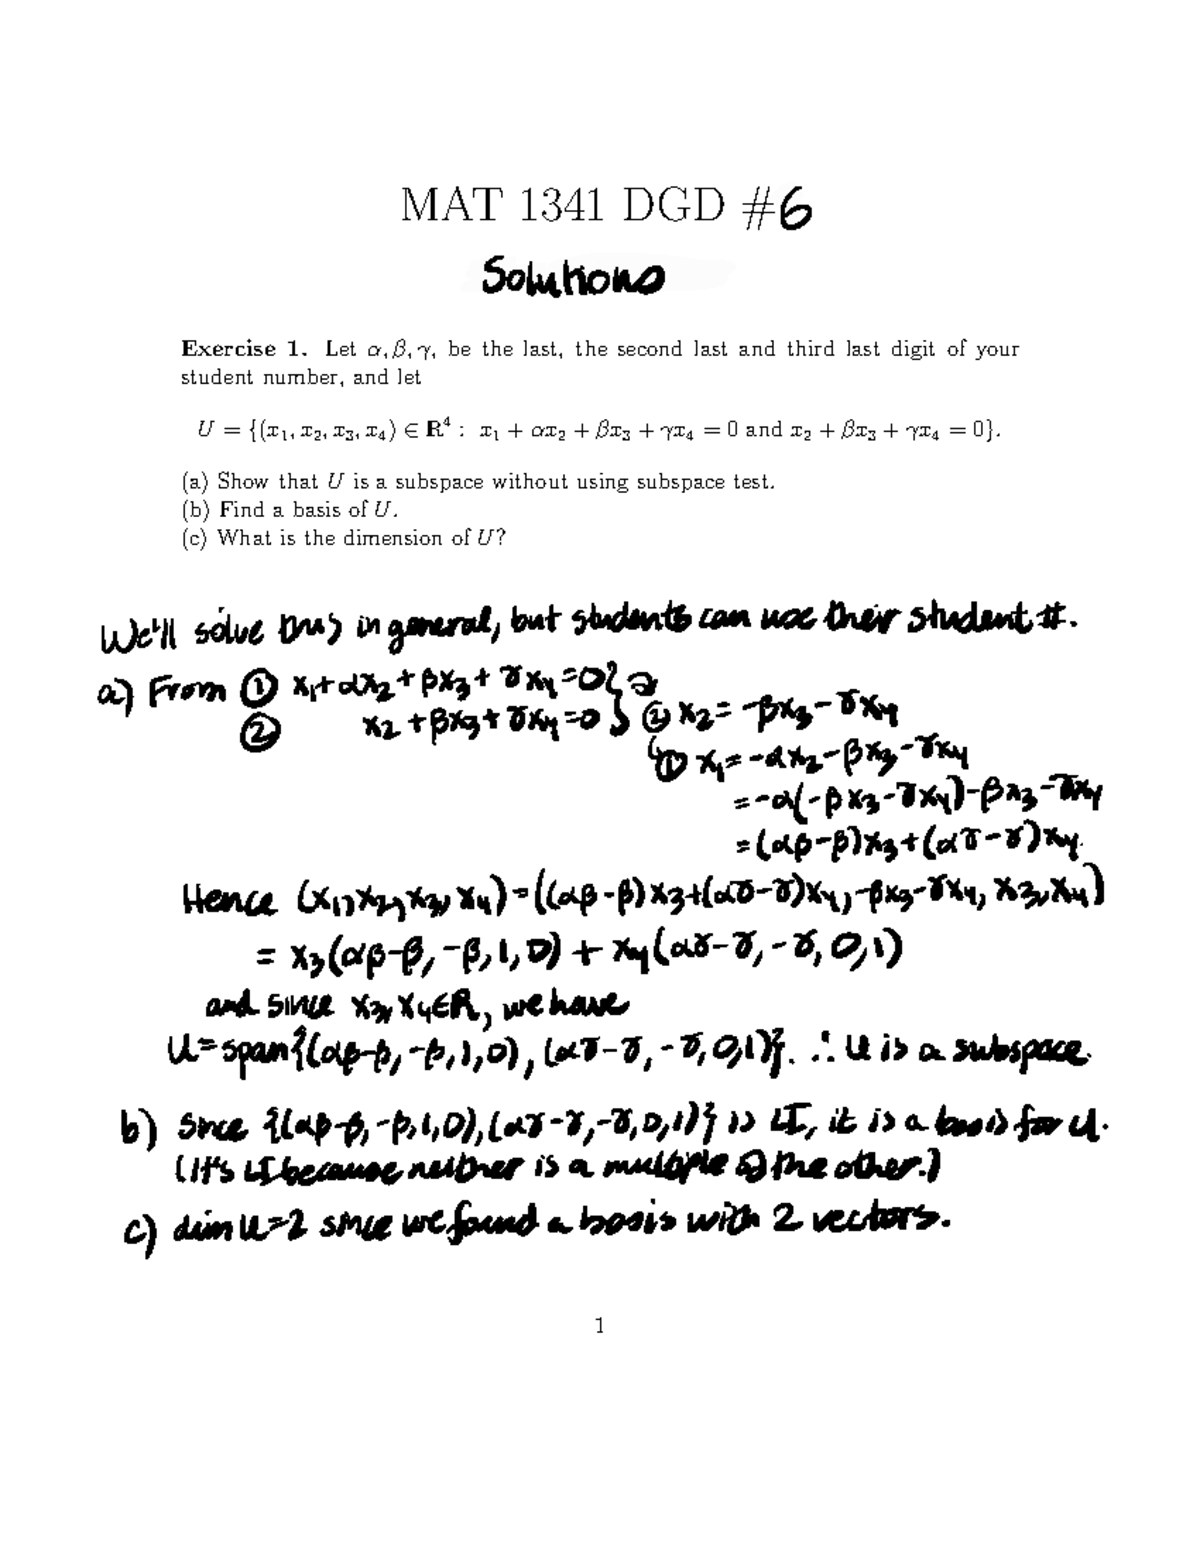 MAT 1341 DGD #6
Solutions
Exercise 1. Let α, β, γ, be the last, the second last and third last digit of your
student number, and let
U = {(x₁, x₂, x₃, x₄) ∈ R⁴ : x₁ + αx₂ + βx₃ + γx₄ = 0 and x₂ + βx₃ + γx₄ = 0}.
(a) Show that U is a subspace without using subspace test.
(b) Find a basis of U.
(c) What is the dimension of U?
We'll solve this in general, but students can use their student #.
a) From ① x₁+αx₂+βx₃+γx₄=0 } ⇒
② x₂+βx₃+γx₄=0 } ② x₂ = -βx₃-γx₄
↳ ① x₁=-αx₂-βx₃-γx₄
=-α(-βx₃-γx₄)-βx₃-γx₄
=(αβ-β)x₃+(αγ-γ)x₄.
Hence (x₁,x₂,x₃,x₄)=((αβ-β)x₃+(αγ-γ)x₄,-βx₃-γx₄, x₃,x₄)
= x₃(αβ-β,-β,1,0) + x₄(αγ-γ,-γ,0,1)
and since x₃,x₄∈R, we have
U=span{(αβ-β,-β,1,0),(αγ-γ,-γ,0,1)}. ∴ U is a subspace.
b) Since {(αβ-β,-β,1,0),(αγ-γ,-γ,0,1)} is LI, it is a basis for U.
(It's LI because neither is a multiple of the other.)
c) dim U=2 since we found a basis with 2 vectors.
1